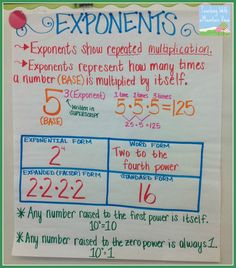 Teaching With
a Mountain View
EXPONENTS
→Exponents show repeated multiplication.
→Exponents represent how many times
a number (BASE) is multiplied by itself.
5 3 (Exponent)
written in
SUPERSCRIPT
(BASE)
1 time 2 times 3 times
5·5·5=125
25·5=125
EXPONENTIAL FORM
2⁴
WORD FORM
Two to the
fourth power
EXPANDED (FACTOR) FORM
2·2·2·2
STANDARD FORM
16
*Any number raised to the first power is itself.
10¹=10
*Any number raised to the zero power is always 1.
10⁰=1